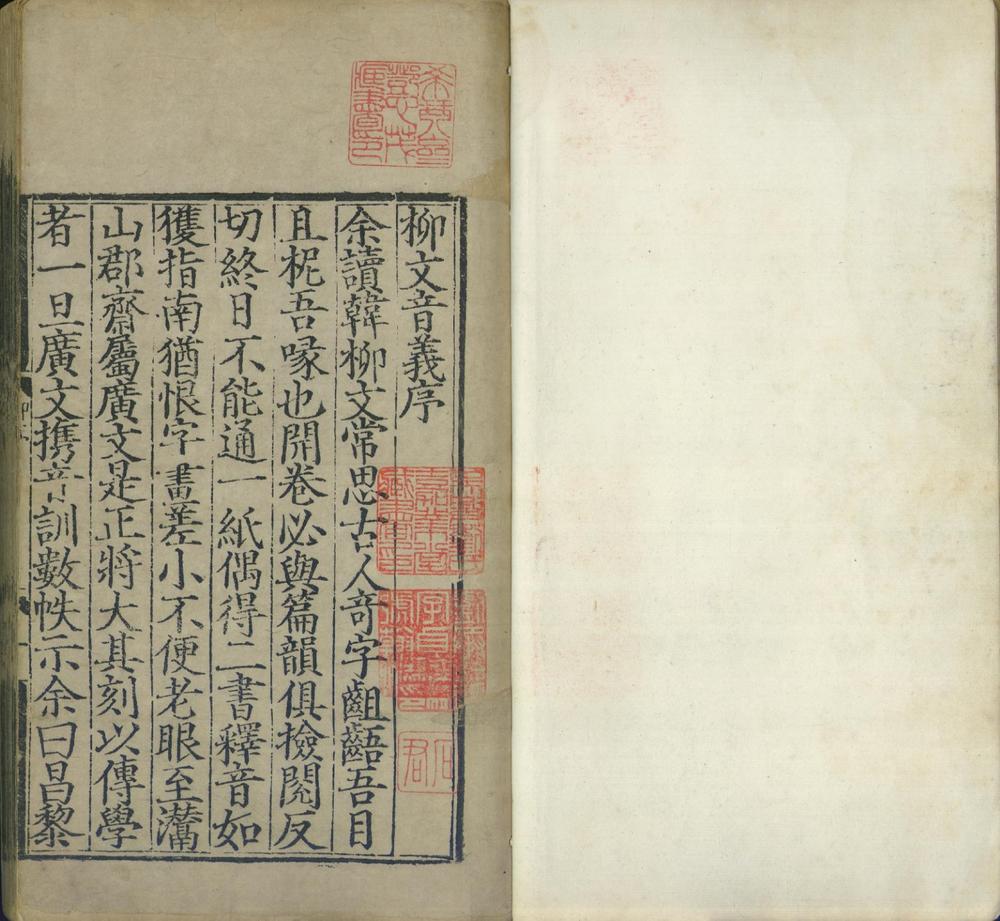 柳文音義序
余讀韓柳文常思古人奇字齟齬吾目
且柅吾喙也開卷必與篇韻俱撿閱反
切終日不能通一紙偶得二書釋音如
獲指南猶恨字畫差小不便老眼至灊
山郡齋屬廣文是正將大其刻以傳學
者一旦廣文携音訓數帙示余曰昌黎